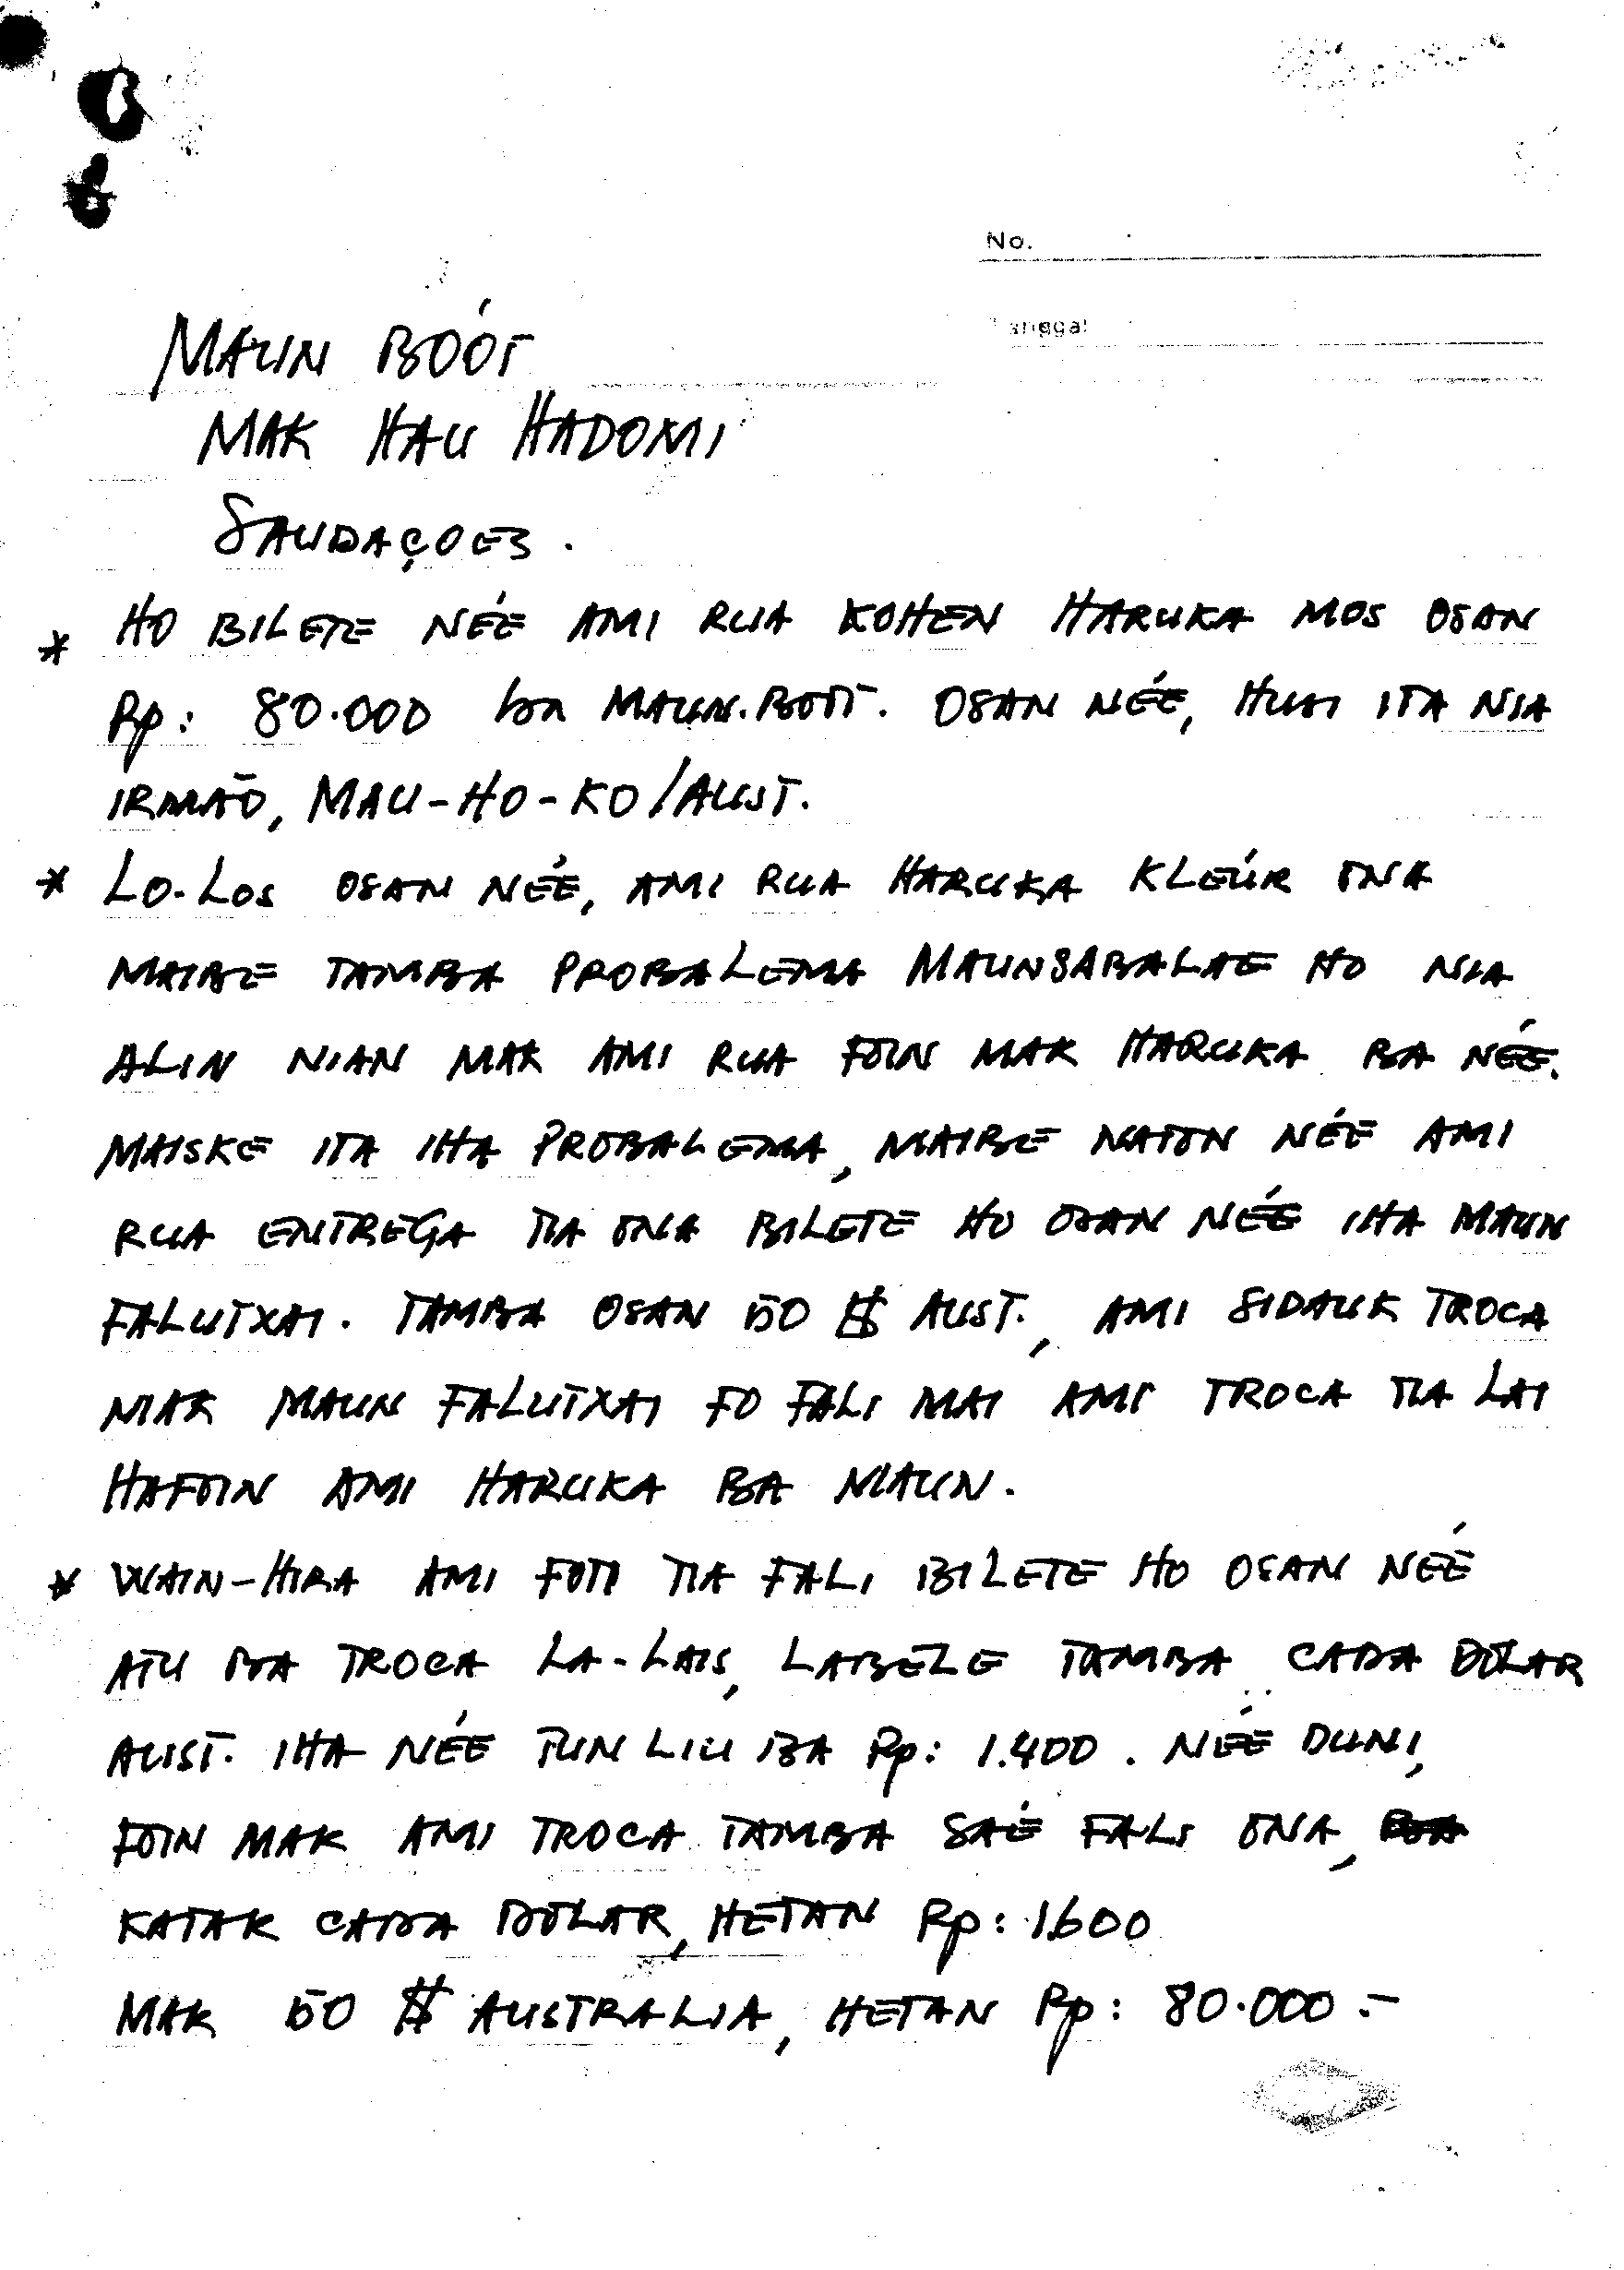 No.
Tanggal
MAUN BOÓT
MAK HAU HADOMI
SAUDAÇOES.
* HO BILETE NÉE AMI RUA KOHEN HARUKA MOS OSAN
Rp: 80.000 ba MAUN.BOOT. OSAN NÉE, HUSI ITA NIA
IRMÃO, MAU-HO-KO/AUST.
* LO-LOS OSAN NÉE, AMI RUA HARUKA KLEÚR ONA
MAIBE TAMBA PROBALEMA MAUNSABALAE HO NIA
ALIN NIAN MAK AMI RUA FOIN MAK HARUKA BA NÉE.
MAISKE ITA IHA PROBALEMA, MAIBE NATON NÉE AMI
RUA ENTREGA TIA ONA BILETE HO OSAN NÉE IHA MAUN
FALUTXAI. TAMBA OSAN 50 $ AUST., AMI SIDAUK TROCA
MAK MAUN FALUTXAI FO FALI MAI AMI TROCA TIA LAI
HAFOIN AMI HARUKA BA MAUN.
* WAIN-HIRA AMI FOTI TIA FALI BILETE HO OSAN NÉE
ATU BA TROCA LA-LAIS, LABELE TAMBA CADA DOLAR
AUST. IHA NÉE TUN LIU BA Rp: 1.400. NÉE DUNI,
FOIN MAK AMI TROCA TAMBA SAÉ FALI ONA,
KATAK CADA DOLAR, HETAN Rp: 1.600
MAK 50 $ AUSTRALIA, HETAN Rp: 80.000.-